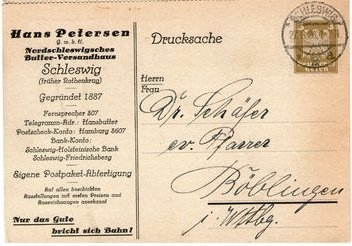 Hans Petersen
G. m. b. H.
Nordschleswigsches
Butter-Versandhaus
Schleswig
(früher Rothenkrug)
Gegründet 1887
Fernsprecher 507
Telegramm-Adr.: Hansbutter
Postscheck-Konto: Hamburg 5607
Bank-Konto:
Schleswig-Holsteinische Bank
Schleswig-Friedrichsberg
Eigene Postpaket-Abfertigung
Auf allen beschickten
Ausstellungen mit ersten Preisen und
Auszeichnungen anerkannt
Nur das Gute
bricht sich Bahn!
Drucksache
SCHLESWIG
Herrn
Frau
Dr. Schäfer
ev. Pfarrer
Böblingen
i. Wttbg.